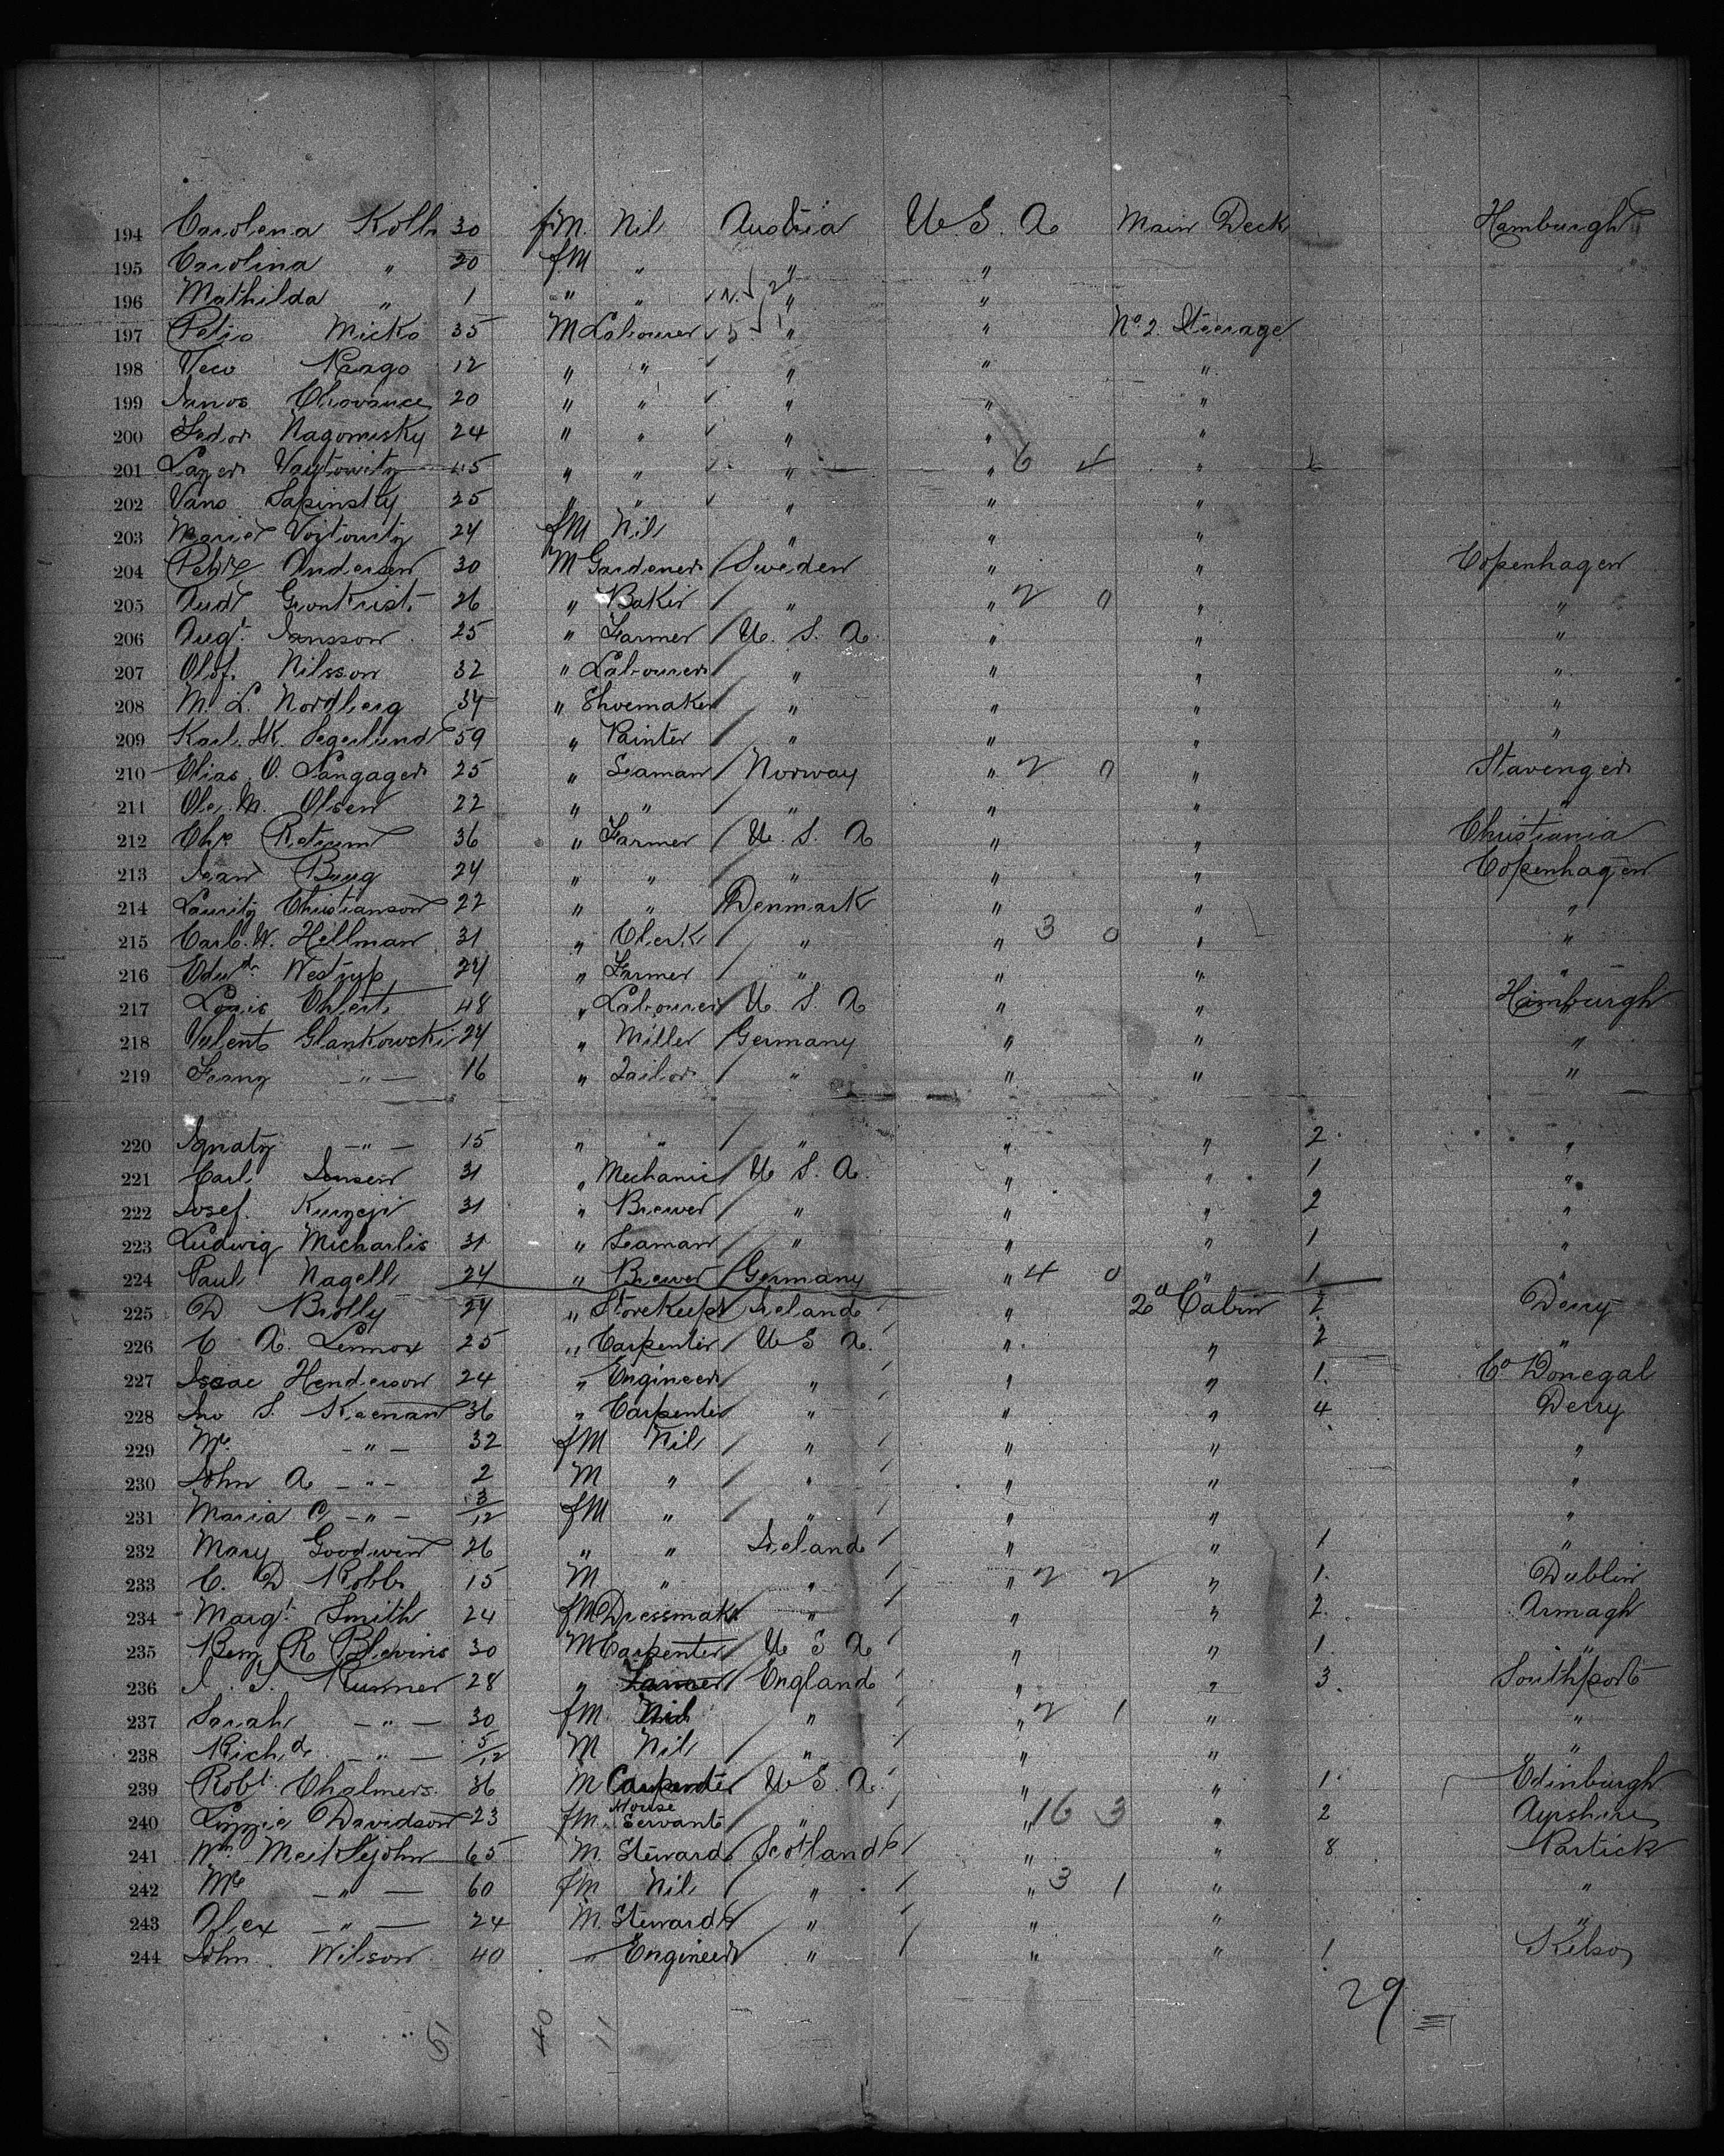 194 Carolena Kolb 30 fM. Nil Austria U. S. A Main Deck Hamburgh
195 Carolina " 20 fM " " "
196 Mathilda " 1 " " " "
197 Petro Micko 35 M Labourer " " No 2. Steerage
198 Veco Rago 12 " " " " "
199 Janos 20 " " " " "
200 Fedor Nagomisky 24 " " " " "
201 Lazer Vaytowitz 45 " " " " 6 "
202 Vano Sapinstky 25 " " " " "
203 Voytowitz 24 fM Nil " " "
204 Andersen 30 M Gardener Sweden " " Copenhagen
205 26 " Baker " " 2 0 " "
206 Augt. Jansson 25 " Farmer U. S. A. " " "
207 Olof. Nilsson 32 " Labourer " " " "
208 M. L. Nordberg 34 " Shoemaker " " " "
209 Karl. Segerlund 59 " Painter " " " "
210 Elias. O. Langager 25 " Seaman Norway " 2 0 " Stavenger
211 Ole. M. Olsen 22 " " " " "
212 Chr. 36 " Farmer U. S. A " " Christiania
213 Bryg 24 " " " " " Copenhagen
214 Lauritz Christianson 22 " " Denmark " " "
215 Carl. W. Hellman 31 " Clerk " " 3 0 " "
216 Edwd. Westrup 24 " Farmer " " " "
217 Louis Ehlert 48 " Labourer U. S. A " " Hamburgh
218 Valent Glankowski 24 " Miller Germany " " "
219 Franz - " - 16 " Tailor " " " "
220 Ignatz - " - 15 " " " " " 2 "
221 Carl Jensen 31 " Mechanic U. S. A. " " 1 "
222 Josef. 31 " Brewer " " " 2 "
223 Ludwig Micharlis 31 " Seaman " " " 1 "
224 Paul Nagell 24 " Brewer Germany " 4 0 " 1 "
225 D Brolly 24 " Storekeepr Ireland " 2d Cabin 2 Derry
226 C A. Lennox 25 " Carpenter U S A. " " 2 "
227 Isaac Henderson 24 " Engineer " " " 1. Co Donegal
228 Jno S. Keenan 36 " Carpenter " " " 4 Derry
229 Mrs - " - 32 fM Nil " " " "
230 John A - " - 2 M " " " " "
231 Maria C - " - 3/12 fM " " " " "
232 Mary Goodwin 26 " " Ireland " " 1 "
233 C. D Robb 15 M " " " 2 2 " 1. Dublin
234 Margt. Smith 24 fM Dressmakr " " " 2. Armagh
235 Benj R Blevins 30 M Carpenter U S A " " 1. "
236 28 " Farmer England " " 3. Southport
237 Sarah - " - 30 fM. Nil " " 2 1 " "
238 Richd. - " - 5/12 M Nil " " " "
239 Robt. Chalmers 36 M Carpenter U S. A. " " 1. Edinburgh
240 Lizzie Davidson 23 fM. House Servant " " 16 3 " 2 Ayrshire
241 Wm. Meiklejohn 65 M. Steward Scotland " " 8 Partick
242 Mrs - " - 60 fM Nil " " 3 1 " "
243 Alex - " - 24 M. Steward " " " "
244 John Wilson 40 " Engineer " " " 1 Kelso
29
51 40 11